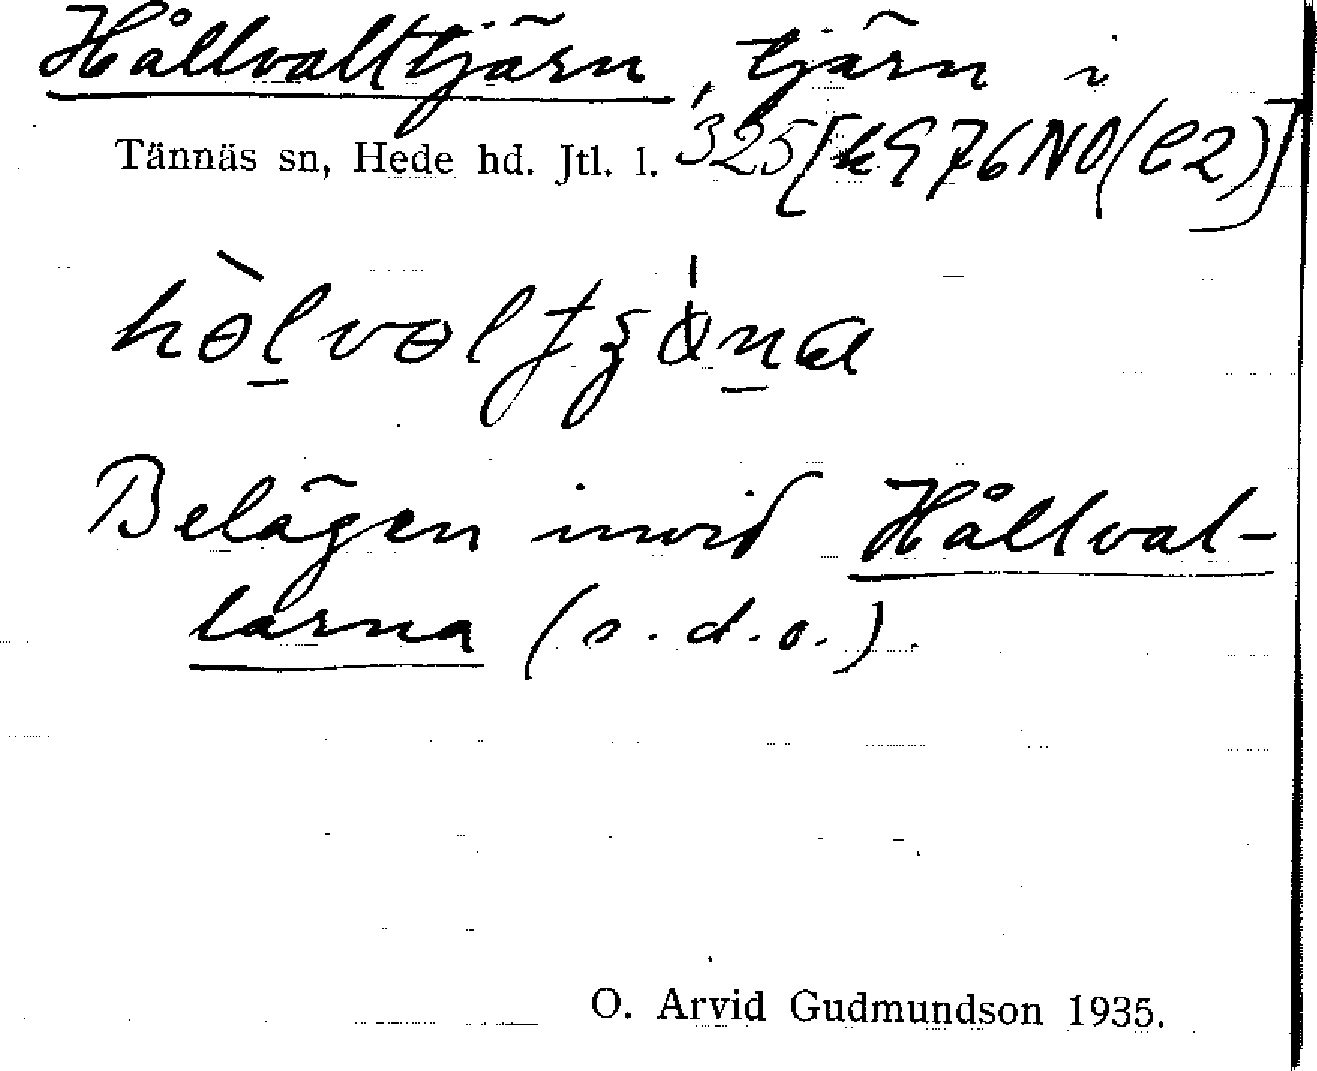 Hållvalltjärn, tjärn i
Tännäs sn, Hede hd. Jtl. l. 325 [k976NO(C2)]
Belägen invid Hållval-
larna (s. d. o.).
O. Arvid Gudmundson 1935.